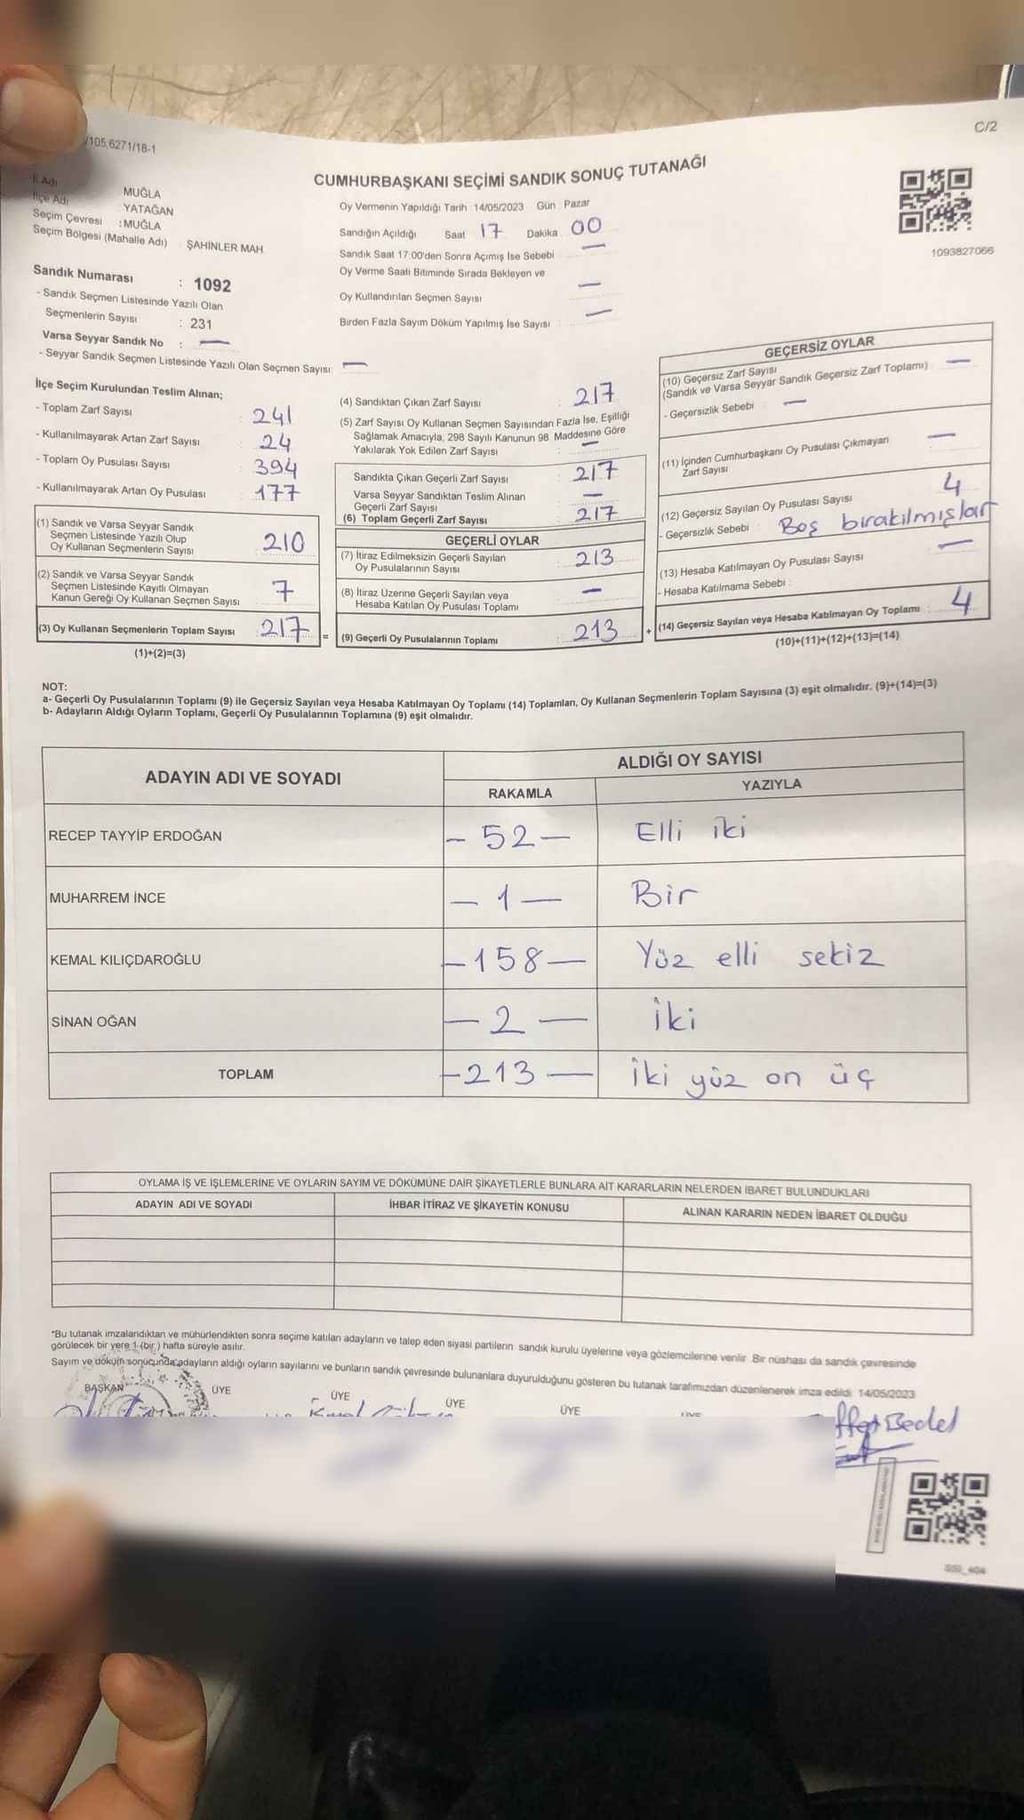 /105.6271/18-1
C/2
CUMHURBAŞKANI SEÇİMİ SANDIK SONUÇ TUTANAĞI
İl Adı MUĞLA
İlçe Adı YATAĞAN
Seçim Çevresi : MUĞLA
Seçim Bölgesi (Mahalle Adı) ŞAHİNLER MAH
Oy Vermenin Yapıldığı Tarih 14/05/2023 Gün Pazar
Sandığın Açıldığı Saat 17 Dakika 00
Sandık Saat 17:00'den Sonra Açımış İse Sebebi —
Oy Verme Saati Bitiminde Sırada Bekleyen ve
Oy Kullandırılan Seçmen Sayısı —
Birden Fazla Sayım Döküm Yapılmış İse Sayısı —
1093827066
Sandık Numarası : 1092
- Sandık Seçmen Listesinde Yazılı Olan
Seçmenlerin Sayısı : 231
Varsa Seyyar Sandık No : —
- Seyyar Sandık Seçmen Listesinde Yazılı Olan Seçmen Sayısı: —
İlçe Seçim Kurulundan Teslim Alınan;
- Toplam Zarf Sayısı 241
- Kullanılmayarak Artan Zarf Sayısı 24
- Toplam Oy Pusulası Sayısı 394
- Kullanılmayarak Artan Oy Pusulası 177
(1) Sandık ve Varsa Seyyar Sandık
Seçmen Listesinde Yazılı Olup
Oy Kullanan Seçmenlerin Sayısı 210
(2) Sandık ve Varsa Seyyar Sandık
Seçmen Listesinde Kayıtlı Olmayan
Kanun Gereği Oy Kullanan Seçmen Sayısı 7
(3) Oy Kullanan Seçmenlerin Toplam Sayısı 217 =
(1)+(2)=(3)
(4) Sandıktan Çıkan Zarf Sayısı 217
(5) Zarf Sayısı Oy Kullanan Seçmen Sayısından Fazla İse, Eşitliği
Sağlamak Amacıyla, 298 Sayılı Kanunun 98. Maddesine Göre
Yakılarak Yok Edilen Zarf Sayısı —
Sandıkta Çıkan Geçerli Zarf Sayısı 217
Varsa Seyyar Sandıktan Teslim Alınan
Geçerli Zarf Sayısı —
(6) Toplam Geçerli Zarf Sayısı 217
GEÇERLİ OYLAR
(7) İtiraz Edilmeksizin Geçerli Sayılan
Oy Pusulalarının Sayısı 213
(8) İtiraz Üzerine Geçerli Sayılan veya
Hesaba Katılan Oy Pusulası Toplamı —
(9) Geçerli Oy Pusulalarının Toplamı 213 +
GEÇERSİZ OYLAR
(10) Geçersiz Zarf Sayısı
(Sandık ve Varsa Seyyar Sandık Geçersiz Zarf Toplamı) —
- Geçersizlik Sebebi —
(11) İçinden Cumhurbaşkanı Oy Pusulası Çıkmayan
Zarf Sayısı —
(12) Geçersiz Sayılan Oy Pusulası Sayısı 4
- Geçersizlik Sebebi : Boş bırakılmışlar
(13) Hesaba Katılmayan Oy Pusulası Sayısı —
- Hesaba Katılmama Sebebi :
(14) Geçersiz Sayılan veya Hesaba Katılmayan Oy Toplamı : 4
(10)+(11)+(12)+(13)=(14)
NOT:
a- Geçerli Oy Pusulalarının Toplamı (9) ile Geçersiz Sayılan veya Hesaba Katılmayan Oy Toplamı (14) Toplamları, Oy Kullanan Seçmenlerin Toplam Sayısına (3) eşit olmalıdır. (9)+(14)=(3)
b- Adayların Aldığı Oyların Toplamı, Geçerli Oy Pusulalarının Toplamına (9) eşit olmalıdır.
ADAYIN ADI VE SOYADI
ALDIĞI OY SAYISI
RAKAMLA YAZIYLA
RECEP TAYYİP ERDOĞAN - 52 — Elli iki
MUHARREM İNCE — 1 — Bir
KEMAL KILIÇDAROĞLU — 158 — Yüz elli sekiz
SİNAN OĞAN — 2 — İki
TOPLAM - 213 — İki yüz on üç
OYLAMA İŞ VE İŞLEMLERİNE VE OYLARIN SAYIM VE DÖKÜMÜNE DAİR ŞİKAYETLERLE BUNLARA AİT KARARLARIN NELERDEN İBARET BULUNDUKLARI
ADAYIN ADI VE SOYADI İHBAR İTİRAZ VE ŞİKAYETİN KONUSU ALINAN KARARIN NEDEN İBARET OLDUĞU
*Bu tutanak imzalandıktan ve mühürlendikten sonra seçime katılan adayların ve talep eden siyasi partilerin sandık kurulu üyelerine veya gözlemcilerine verilir. Bir nüshası da sandık çevresinde
görülecek bir yere 1 (bir) hafta süreyle asılır.
Sayım ve döküm sonucunda adayların aldığı oyların sayılarını ve bunların sandık çevresinde bulunanlara duyurulduğunu gösteren bu tutanak tarafımızdan düzenlenerek imza edildi. 14/05/2023
BAŞKAN ÜYE ÜYE ÜYE ÜYE
Bedel